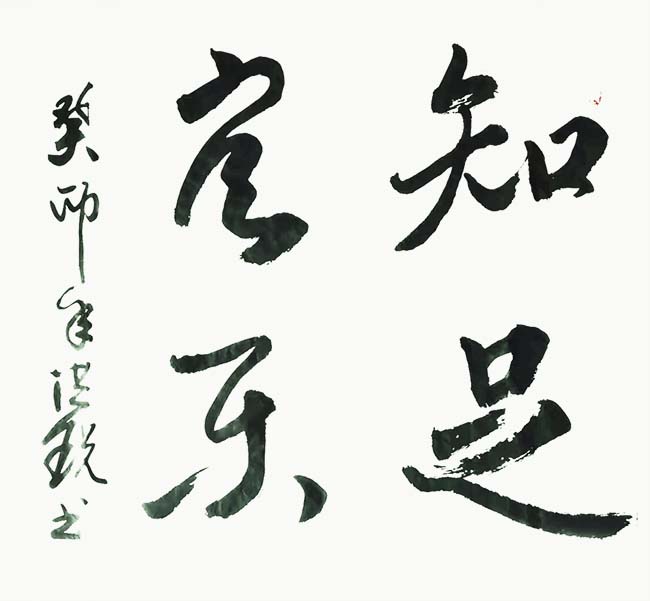 知足
常乐
癸卯年洪锐书